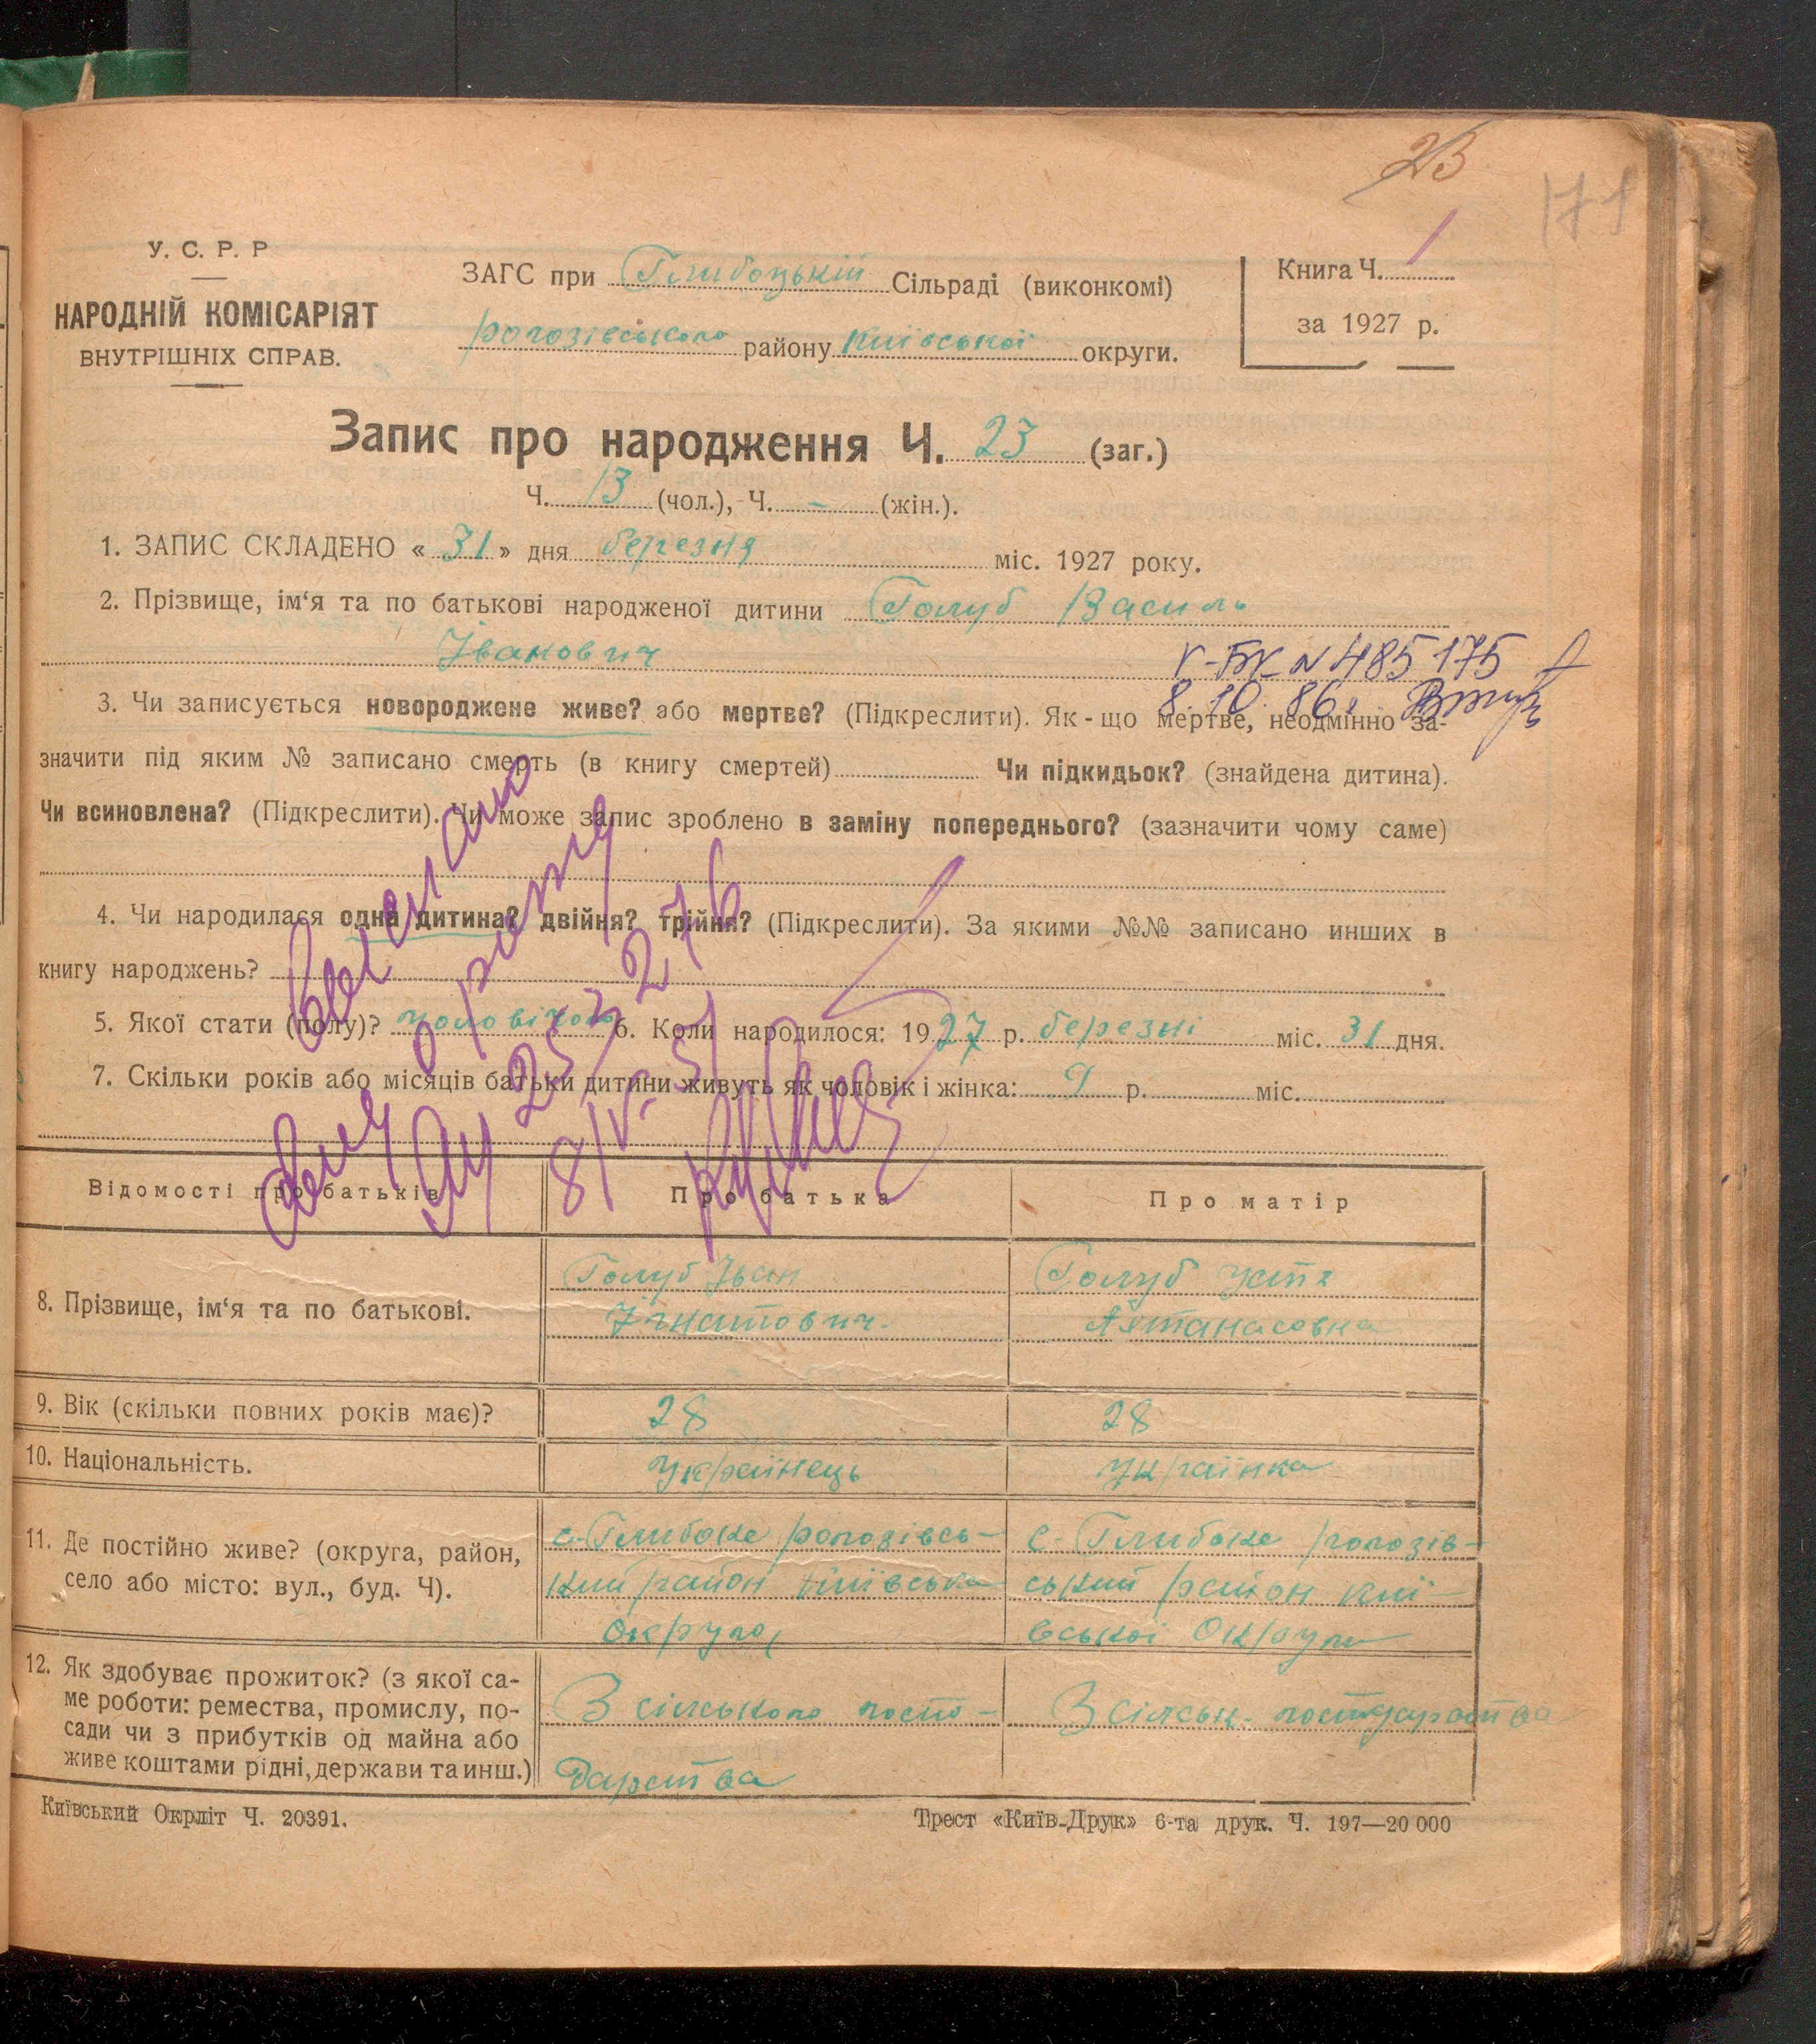 23
171
У. С. Р. Р
НАРОДНІЙ КОМІСАРІЯТ
ВНУТРІШНІХ СПРАВ.
ЗАГС при Глибоцькій Сільраді (виконкомі)
рогозівського району Київської округи.
Книга Ч. 1
за 1927 р.
Запис про народження Ч. 23 (заг.)
Ч. 13 (чол.), Ч. - (жін.).
1. ЗАПИС СКЛАДЕНО « 31 » дня березня міс. 1927 року.
2. Прізвище, ім‘я та по батькові народженої дитини Голуб Василь
Іванович
V-БК N 485175
8.10.86г
3. Чи записується новороджене живе? або мертве? (Підкреслити). Як - що мертве, неодмінно за-
значити під яким № записано смерть (в книгу смертей) Чи підкидьок? (знайдена дитина).
Чи всиновлена? (Підкреслити). Чи може запис зроблено в заміну попереднього? (зазначити чому саме)
4. Чи народилася одна дитина? двійня? трійня? (Підкреслити). За якими №№ записано инших в
книгу народжень?
5. Якої стати (полу)? чоловічого 6. Коли народилося: 1927 р. березні міс. 31 дня.
7. Скільки років або місяців батьки дитини живуть як чоловік і жінка: 9 р. міс.
Відомості про батьків
Про батька
Про матір
8. Прізвище, ім‘я та по батькові.
Голуб Іван
Ігнатович
Голуб Устя
Автанасовна
9. Вік (скільки повних років має)?
28
28
10. Національність.
Українець
Українка
11. Де постійно живе? (округа, район,
село або місто: вул., буд. Ч).
с-Глибоке рогозівсь-
кий район Київська
Округа
с-Глибоке рогозів-
ський район Киї
вської Округи
12. Як здобуває прожиток? (з якої са-
ме роботи: ремества, промислу, по-
сади чи з прибутків од майна або
живе коштами рідні, держави та инш.)
З сільського госпо-
дарства
З сільськ. господарства
Київський Окрліт Ч. 20391.
Трест «Київ-Друк» 6-та друк. Ч. 197—20 000